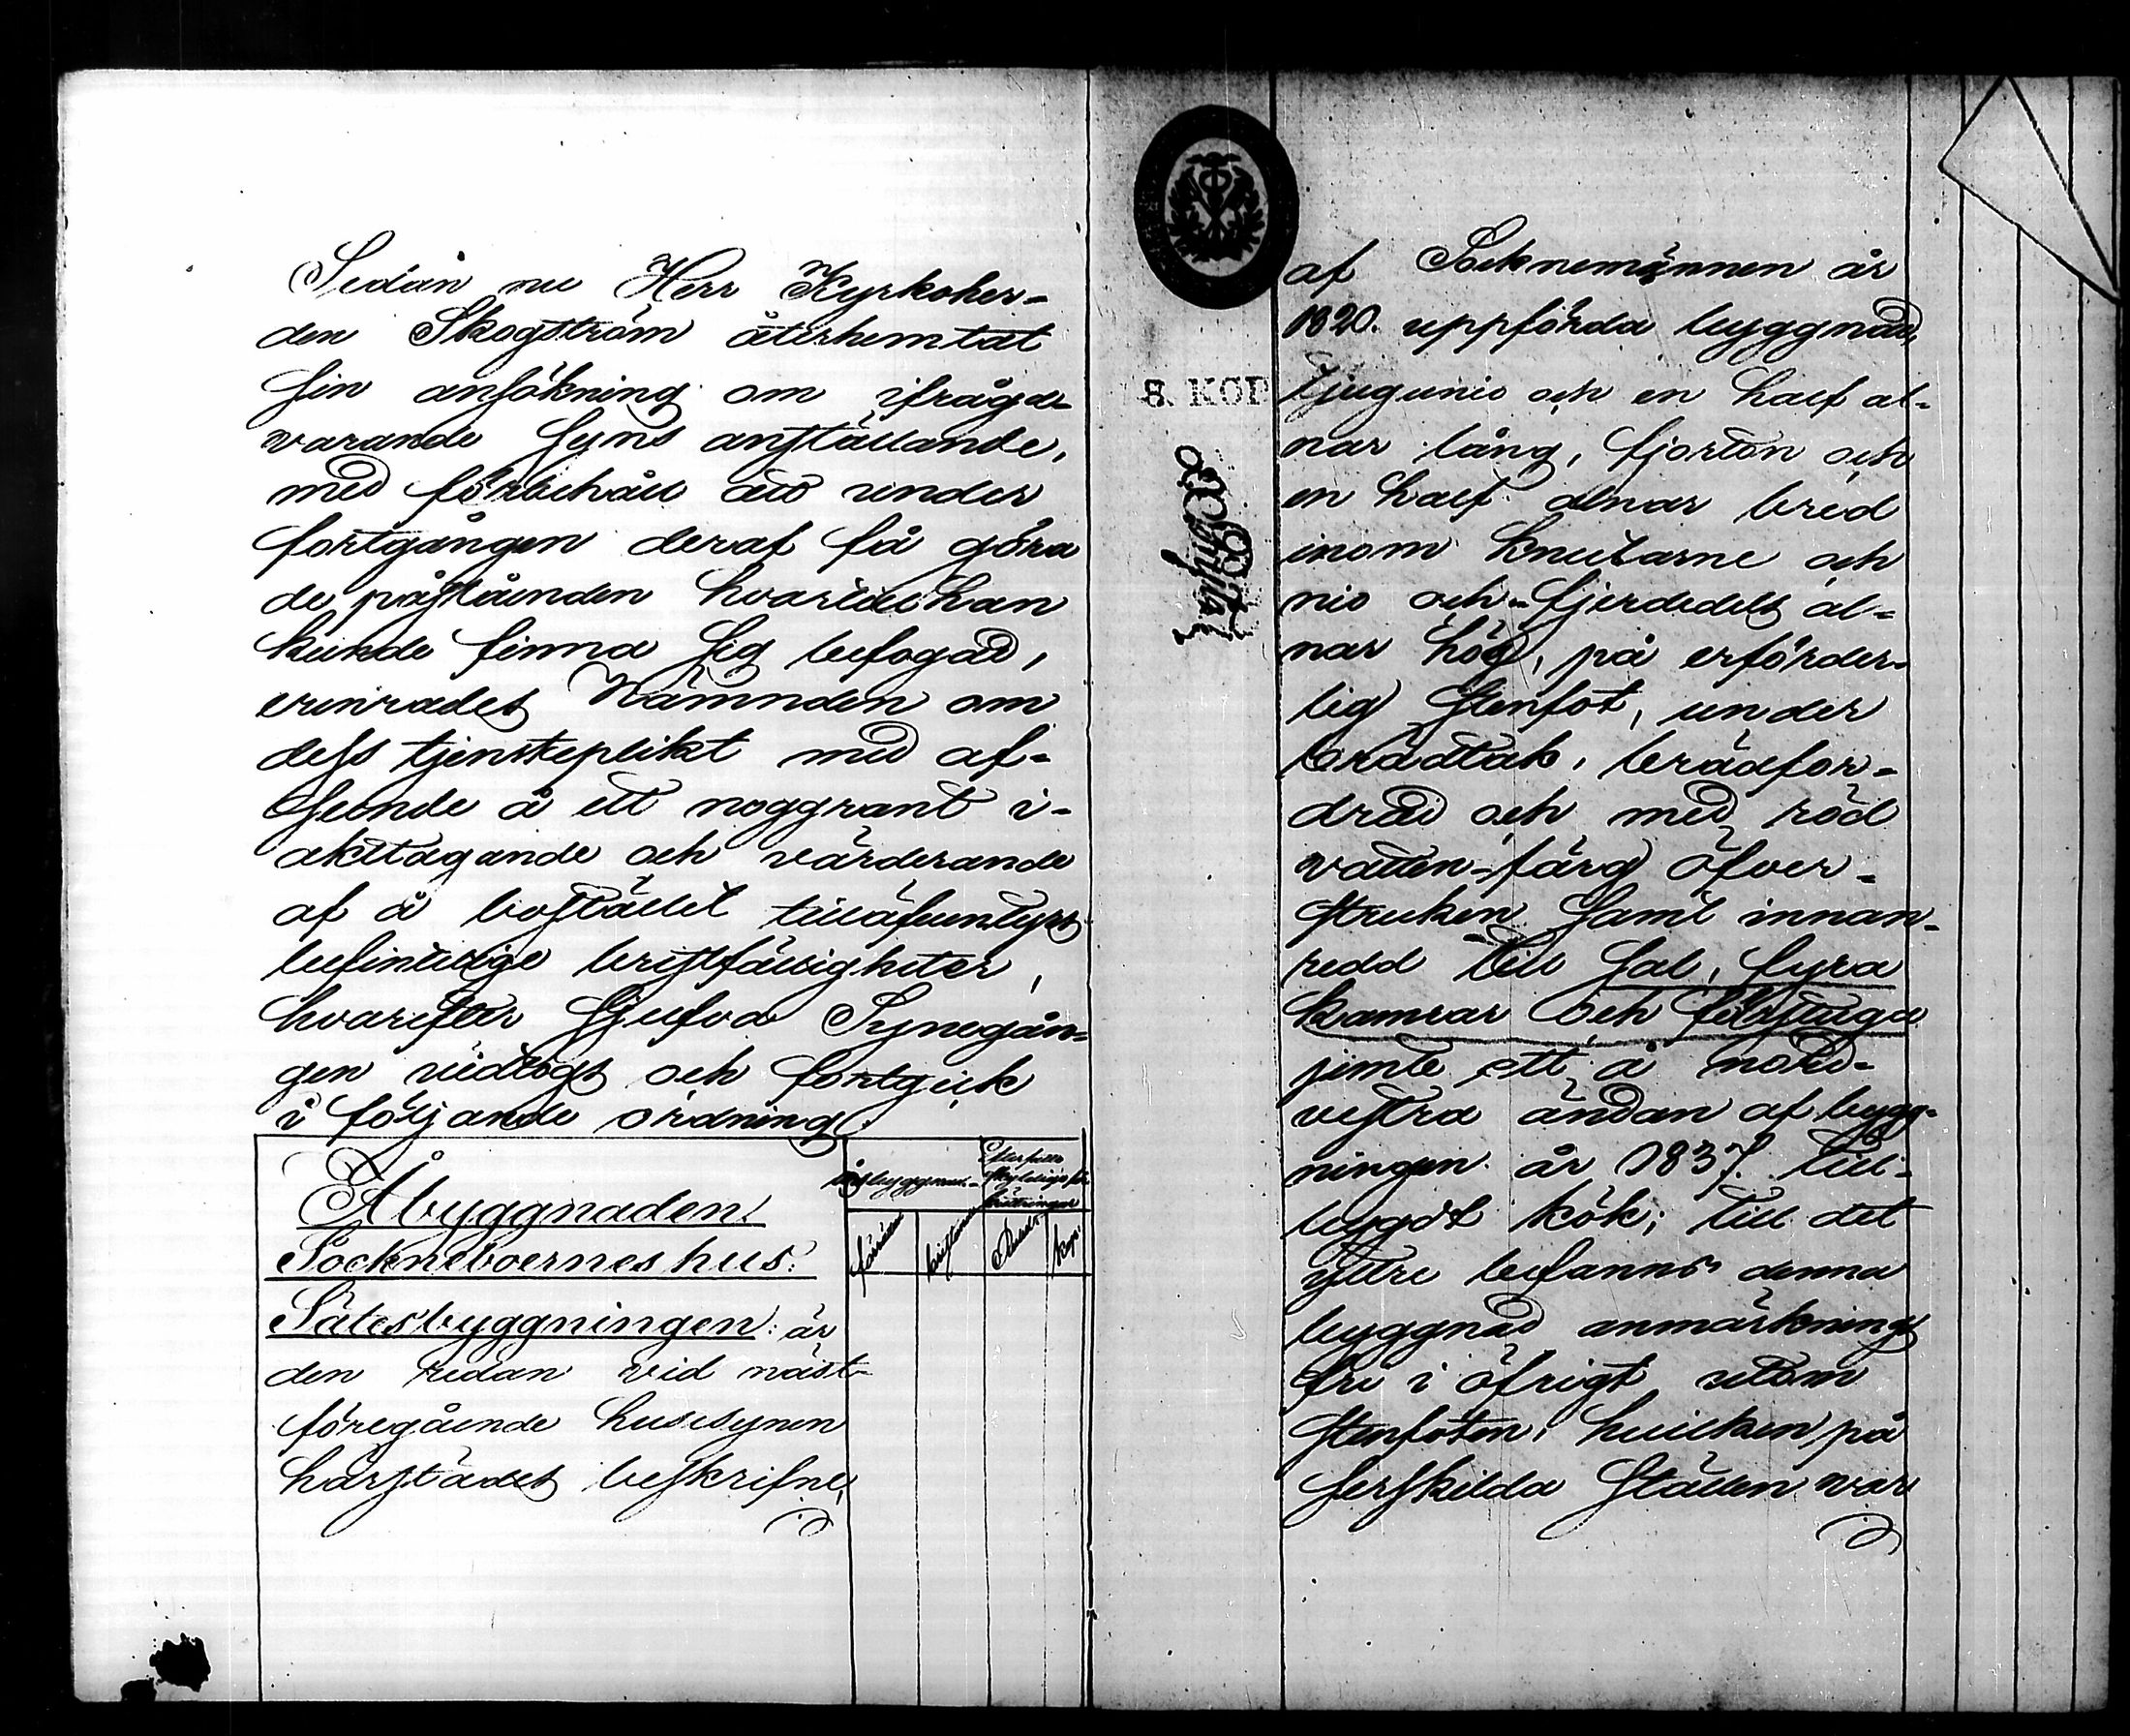 Sedan nu Herr Kyrkoher-
den Skogström återhemtat
sin ansökning om ifråga-
varande syns anställande,
med förbehåll att under
fortgången deraf få göra
de påståenden hvartill han
kunde finna sig befogad,
erinrades Nämnden om
dess tjensteplikt med af-
seende å ett noggrant i-
akttagande och värderande
af å bostället
befintlige bristfälligheter,
hvarefter sjelfva Synegån-
gen vidtogs och fortgick
i följande ordning:
Åbyggnaden.
Socknéboernes hus.
Sätesbyggningen: är
den redan vid näst-
föregående husesyn
härstädes beskrifne,
Åbyggnad.
Rubel Kop.
8. KOP
af Socknemännen år
1820. uppförda byggnad,
tjugunio och en half al-
nar lång, fjorton och
en half alnar bred
inom knutarne och
nio och fjerdedels al-
nar hög, på erforder-
lig stenfot, under
brädtak, brädfor-
drad och med röd
vatten-färg öfver-
struken samt innan-
redd till sal, fyra
kamrar och förstuga
jemte ett å nord-
vestra ändan af bygg-
ningen år 1837. till-
bygdt kök; till det
yttre befanns denna
byggnad anmärknings
fri i öfrigt utom
stenfoten, hvilken på
serskilda ställen var